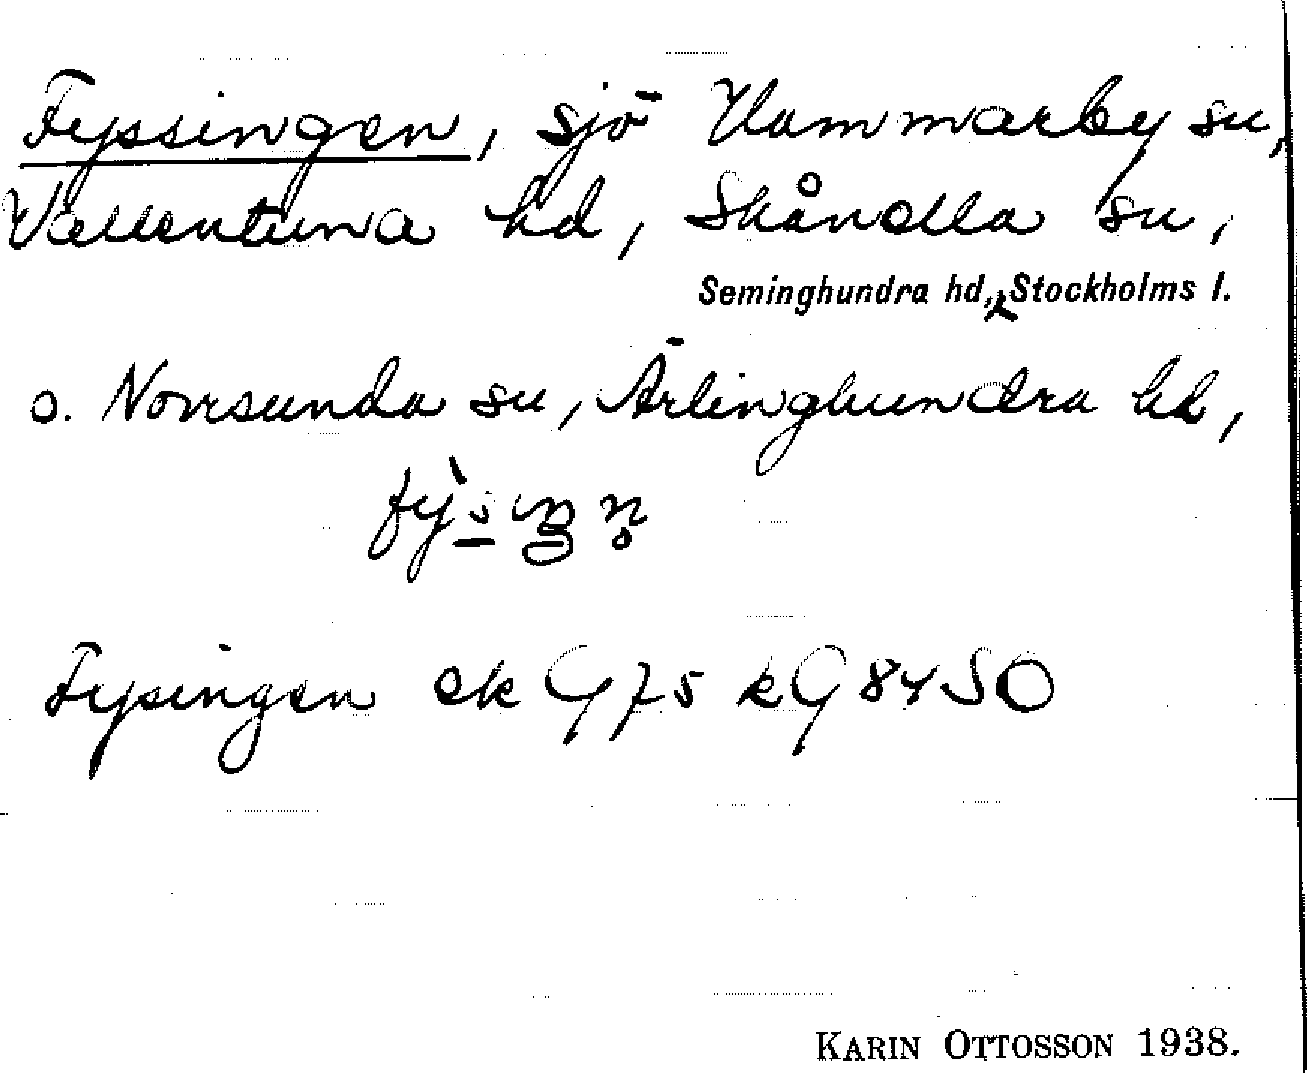 Fyssingen, sjö Hammarby sn,
Vallentuna hd, Skånella sn,
Seminghundra hd, Stockholms l.
o. Norrsunda sn, Ärlinghundra hd,
Fysingen ek G75 kG 84 SO
KARIN OTTOSSON 1938.